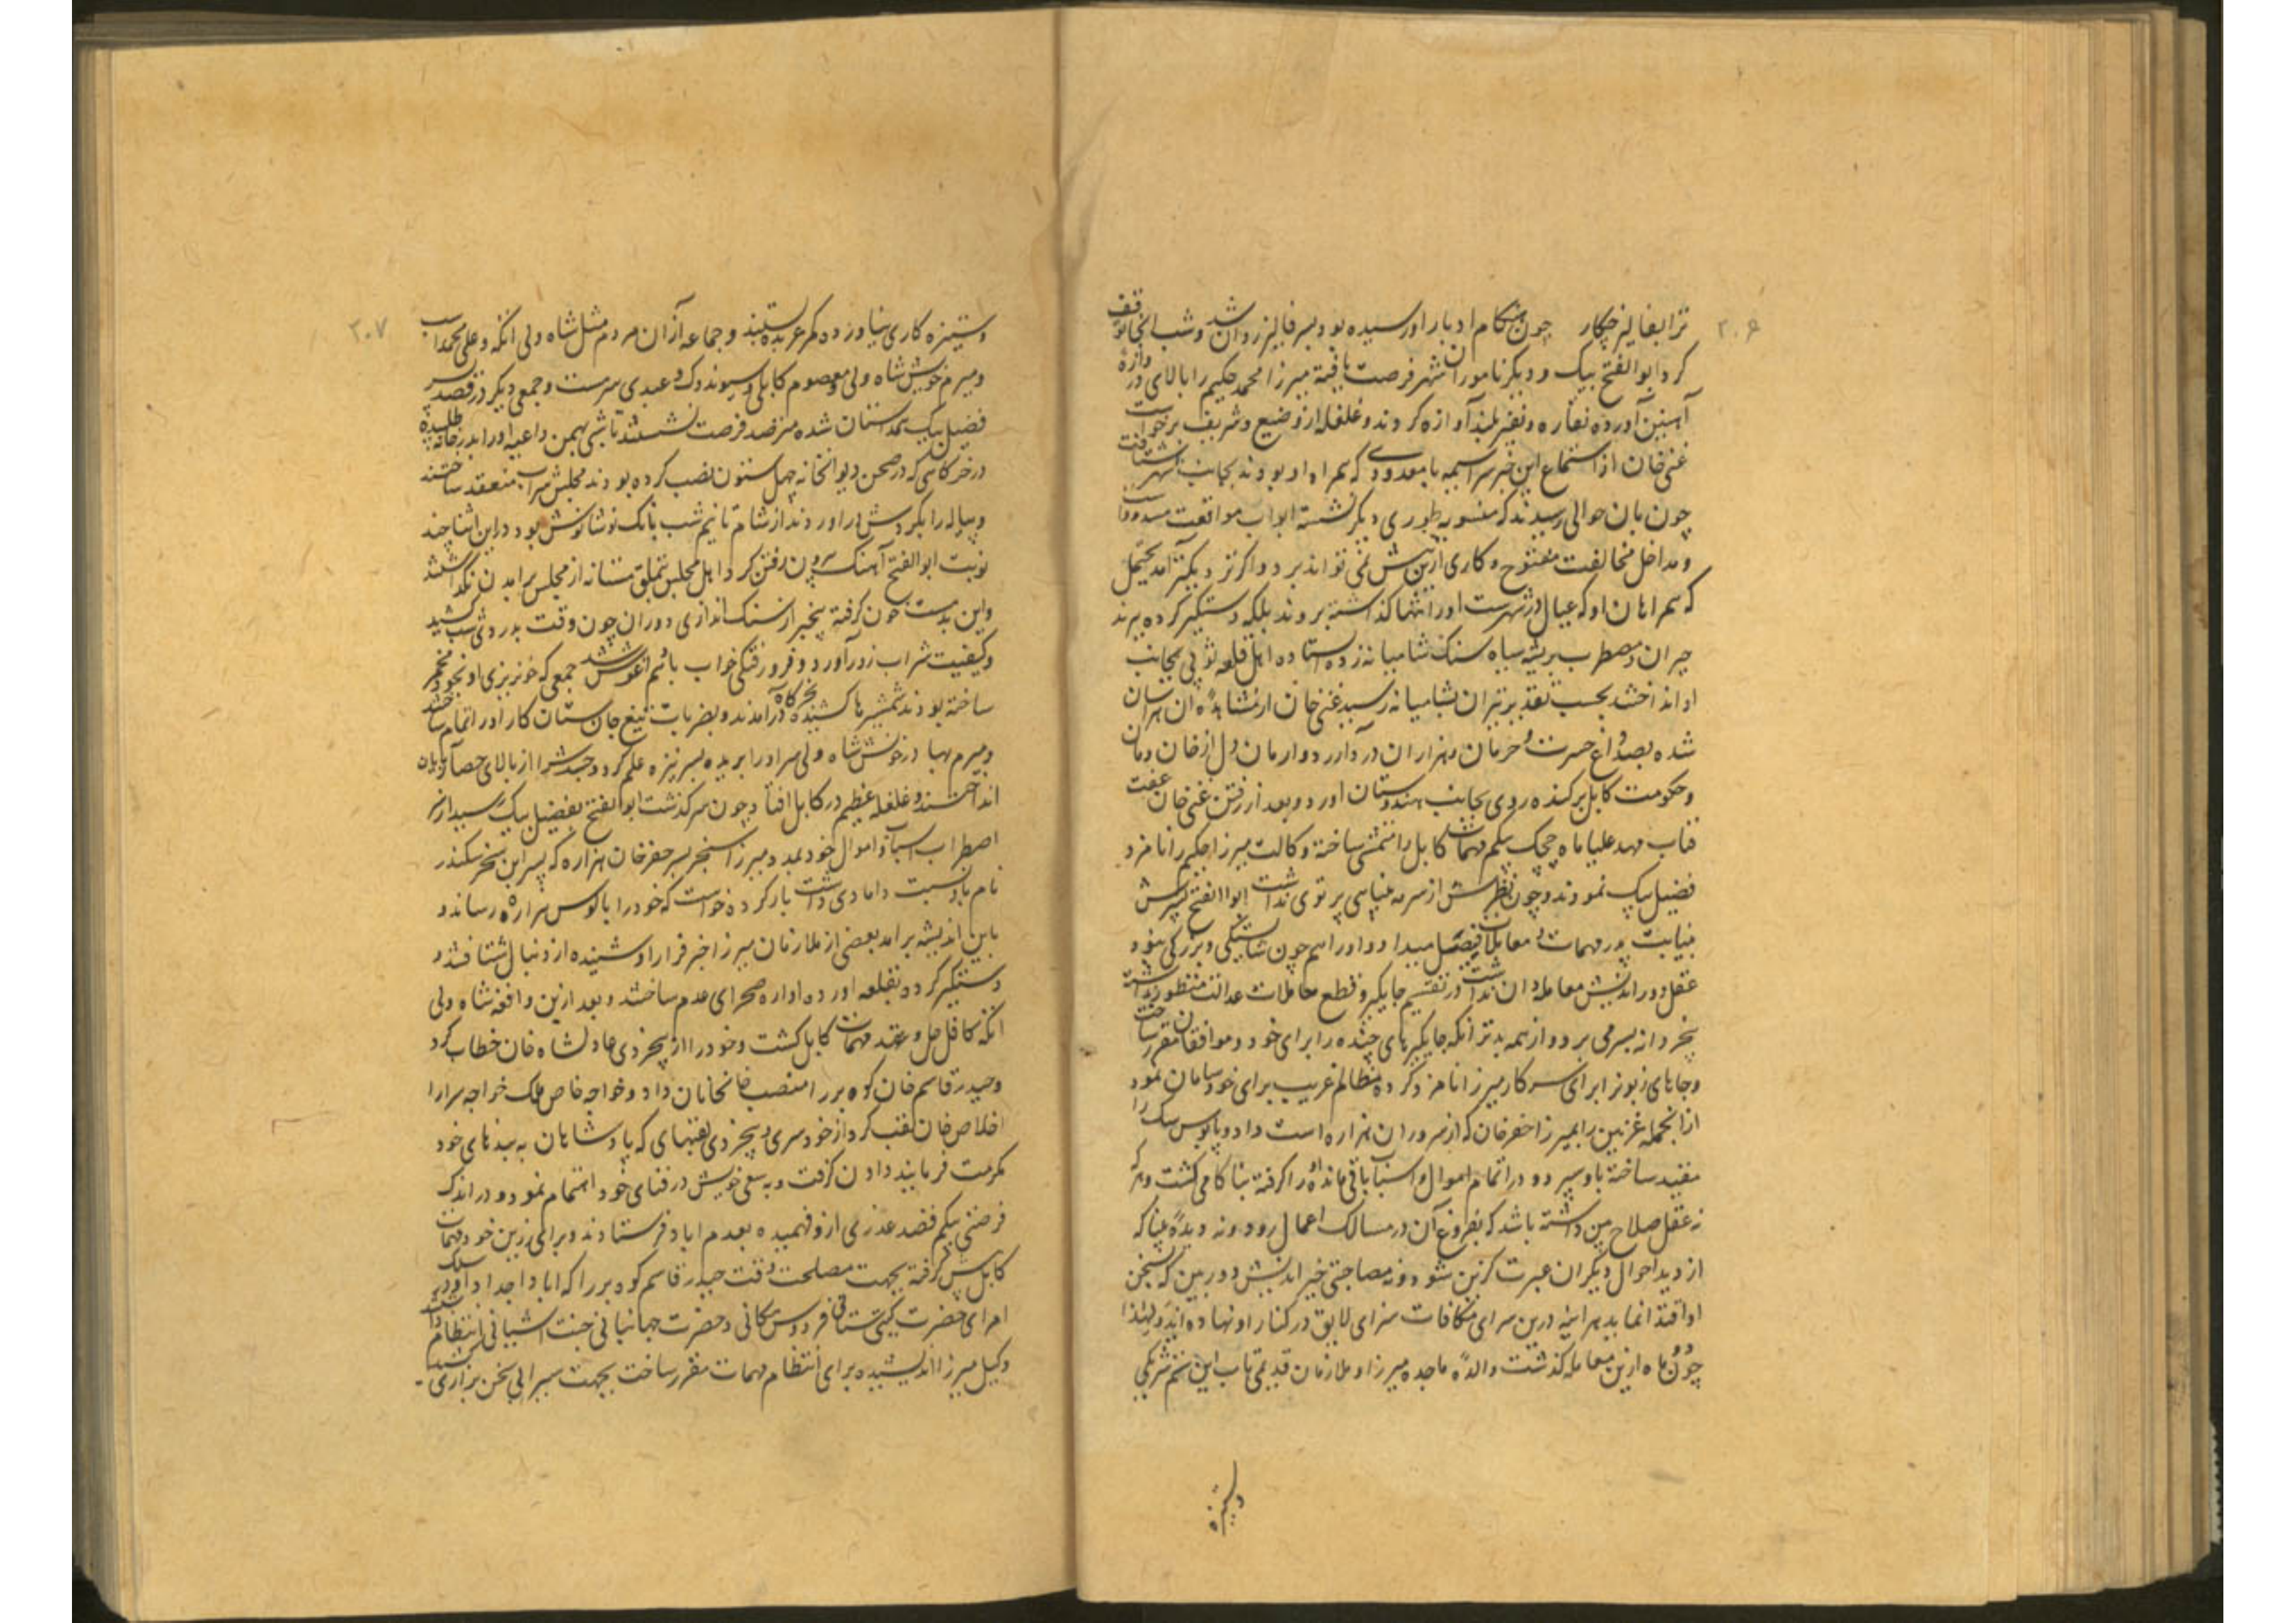 ۳۰۶
ترا بفالیز چکار چون هنگام ادبار او رسیده بود بسر فالیز روان شد و شب انجا توقف
کرد ابوالفتح بیک و دیگر ناموران شهر فرصت یافته میرزا محمد حکیم را بالای دروازه
آهنین آورده نقاره و نفیر بلند آوازه کردند و غلغله از وضیع و شریف برخواست
غنی خان از استماع این خبر سراسیمه با معدودی که همراه او بودند بجانب شهر شتافت
چون بان حوالی رسیدند که منصوبه طوری دیگر نشسته ابواب موافقت مسدود است
و مداخل مخالفت مفتوح و کاری ازپیش نمی تواند برد و اگر نزدیکتر آمد یحتمل
که همراهان او که عیال در شهرست اورا تنها گذاشته بروند بلکه دستگیر کرده ببرند
حیران و مضطرب بر پشته سیاه سنک شامیانه زده ایستاده اهل قلعه توپی بجانب
او انداختند بحسب تقدیر تیر ان بشامیانه رسید غنی خان از مشاهده ان هراسان
شده بصد داغ حسرت و حرمان و هزاران درد و ارمان دل از خان ومان
و حکومت کابل برکنده روی بجانب هندوستان اورد و بعد از رفتن غنی خان عفت
قباب مهد علیا ماه چچک بیکم مهمات کابل را متمشی ساخته وکالت میرزا حکیم را نامزد
فضیل بیک نمودند و چون نظرش از سرمه بینایی پرتوی نداشت ابوالفتح پسرش
بنیابت پدر مهمات و معاملات فیصل میداد و اورا هم چون شایستگی و بزرگی نبود و
عقل دوراندیش معامله دان نداشت در تقسیم جایگیر و قطع معاملات عدالت منظور نداشته
بخردانه بسر می برد و از همه بدتر انکه جایگیرهای چنده را برای خود و موافقان مقرر ساخت
و جاهای زبونرا برای سرکار میرزا نامزد کرده مظالم غریب برای خود سامان نمود
ازانجمله غزنین را بمیرزا خضرخان که از سروران هزاره است داد و بابوس بیک را
مقید ساخته باو سپرد و در اتمام اموال و اسباب باقی مانده او را گرفته بناکامی کشت و هر که
نه عقل صلاح بین داشته باشد که بفروغ آن در مسالک اعمال رود و نه دیده بینا که
از دید احوال دیگران عبرت گزین شود و نه مصاحبی خیراندیش دوربین که بسخن
او اقتدا نماید هر اینه درین سرای مکافات سزای لایق در کنار او نهاده اید و لهذا
چون دو ماه ازین معامله گذشت والده ماجده میرزا و ملازمان قدیمی تاب این ستم شریکی
وستیزه
۳۰۷
وستیزه کاری نیاورده کمر عربده بستند و جماعه آزان مردم مثل شاه ولی اتکه و علی محمد اسپ
و میرم خویش شاه ولی و معصوم کابلی و سیوندوک و عبدی سرمست و جمعی دیگر در قصد پسر
فضیل بیک همداستان شده مترصد فرصت نشستند تا شبی بهمین داعیه اورا بدرخانه طلبیده
در خرگاهی که در صحن دیوانخانه چهل ستون نصب کرده بودند مجلس شراب منعقد ساختند
و پیاله را بکردش دراوردند از شام تا نیم شب بانک نوشانوش بود دراین اثنا چند
نوبت ابوالفتح آهنک بیرون رفتن کرد اهل مجلس بتملق مستانه از مجلس برامدن نگذاشتند
و این بدمست خون گرفته بیخبر از سنک اندازی دوران چون وقت بدور دوئی شب کشید
و کیفیت شراب زور آورد و فرو رفتگی خواب بانهم آغوش شد جمعی که خونریزی او بخود مخمر
ساخته بودند شمشیرها کشیده بخرگاه درامدند و بضربات تیغ جان ستان کار اورا تمام ساختند
و میرم بهادر خویش شاه ولی سر اورا بریده بسر نیزه علم کرد و جسدش را از بالای حصار پایان
انداختند و غلغله عظیم در کابل افتاد چون سرگذشت ابوالفتح بفضیل بیک رسید از سر
اضطراب اسباب و اموال خود بدو میرزا سنجر پسر خضرخان هزاره که پسر این سخر سکندر
نام باو نسبت دامادی داشت بار کرده خواست که خود را با کوس هزاره رساند و
باین اندیشه برامد بعضی از ملازمان میرزا خبر فرار او شنیده از دنبال شتافتند و
دستگیر کرده بقلعه اورده اواره صحرای عدم ساختند و بعد ازین واقعه شاه ولی
اتکه کافل حل و عقد مهمات کابل کشت و خود را از بیخردی عادلشاه خان خطاب کرد
و حیدر قاسم خان کوه بر را منصب خانخانان داد و خواجه خاص ملک خواجه سرا را
اخلاص خان لقب کرد از خودسری و بیخردی لقبهای که پادشاهان به بندهای خود
مکرمت فرمایند دادن گرفت و به سعی خویش در فنای خود اهتمام نمود و در اندک
فرصتی بیکم قصد عذری ازو فهمیده بعدم اباد فرستادند و برای رزین خود مهمات
کابل پیش گرفته بجهت مصلحت وقت حیدر قاسم کوه بر را که ابا و اجداد او در سلک
امرای حضرت گیتی ستانی فردوس مکانی و حضرت جهانبانی جنت اشیانی انتظام داشتند
وکیل میرزا اندیشیده برای انتظام مهمات مقرر ساخت بجهت سبرابی سخن برازی